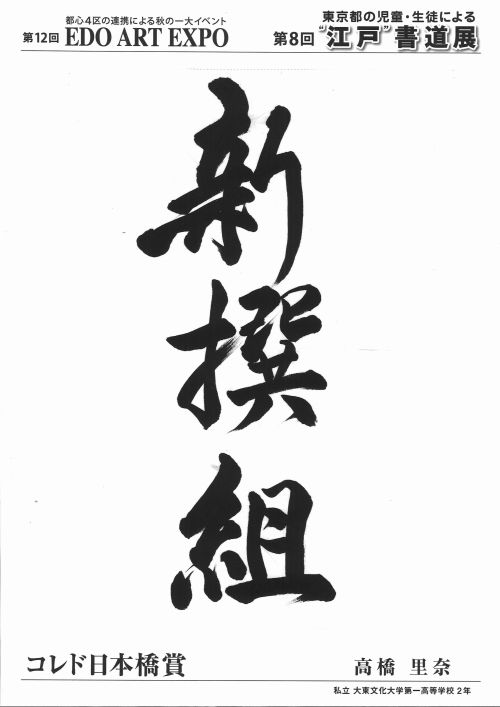 都心4区の連携による秋の一大イベント
第12回 EDO ART EXPO
東京都の児童・生徒による
第8回 "江戸" 書道展
新撰組
コレド日本橋賞
高橋 里奈
私立 大東文化大学第一高等学校 2年